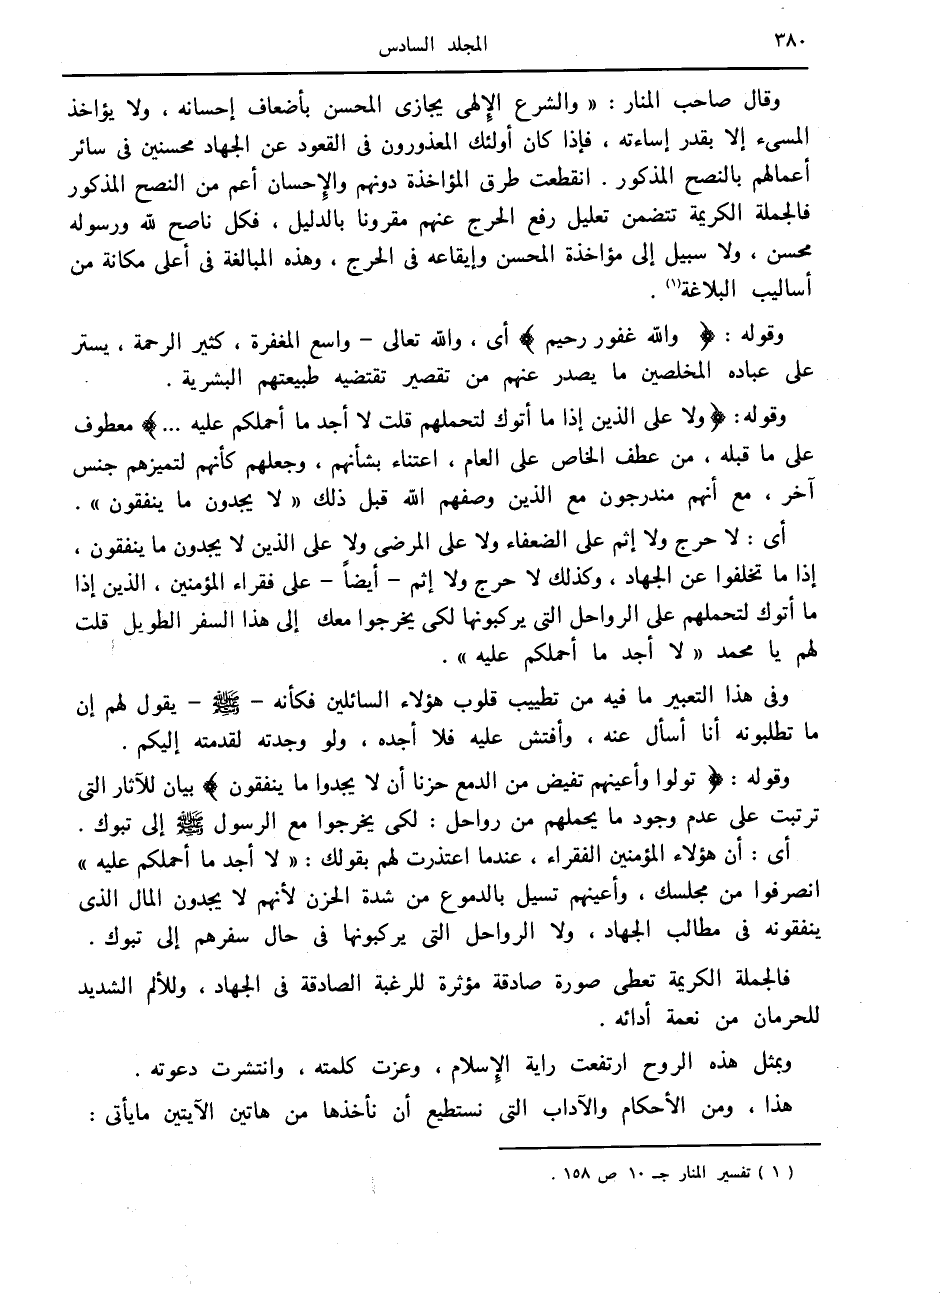 ٣٨٠
المجلد السادس
وقال صاحب المنار : « والشرع الإلهى يجازى المحسن بأضعاف إحسانه ، ولا يؤاخذ
المسىء إلا بقدر إساءته ، فإذا كان أولئك المعذورون فى القعود عن الجهاد محسنين فى سائر
أعمالهم بالنصح المذكور . انقطعت طرق المؤاخذة دونهم والإحسان أعم من النصح المذكور
فالجملة الكريمة تتضمن تعليل رفع الحرج عنهم مقرونا بالدليل ، فكل ناصح لله ورسوله
محسن ، ولا سبيل إلى مؤاخذة المحسن وإيقاعه فى الحرج ، وهذه المبالغة فى أعلى مكانة من
أساليب البلاغة(١) .
وقوله : ﴿ والله غفور رحيم ﴾ أى ، والله تعالى – واسع المغفرة ، كثير الرحمة ، يستر
على عباده المخلصين ما يصدر عنهم من تقصير تقتضيه طبيعتهم البشرية .
وقوله: ﴿ ولا على الذين إذا ما أتوك لتحملهم قلت لا أجد ما أحملكم عليه ... ﴾ معطوف
على ما قبله ، من عطف الخاص على العام ، اعتناء بشأنهم ، وجعلهم كأنهم لتميزهم جنس
آخر ، مع أنهم مندرجون مع الذين وصفهم الله قبل ذلك « لا يجدون ما ينفقون » .
أى : لا حرج ولا إثم على الضعفاء ولا على المرضى ولا على الذين لا يجدون ما ينفقون ،
إذا ما تخلفوا عن الجهاد ، وكذلك لا حرج ولا إثم – أيضاً – على فقراء المؤمنين ، الذين إذا
ما أتوك لتحملهم على الرواحل التى يركبونها لكى يخرجوا معك إلى هذا السفر الطويل قلت
لهم يا محمد « لا أجد ما أحملكم عليه » .
وفى هذا التعبير ما فيه من تطييب قلوب هؤلاء السائلين فكأنه – ﷺ – يقول لهم إن
ما تطلبونه أنا أسأل عنه ، وأفتش عليه فلا أجده ، ولو وجدته لقدمته إليكم .
وقوله : ﴿ تولوا وأعينهم تفيض من الدمع حزنا أن لا يجدوا ما ينفقون ﴾ بيان للآثار التى
ترتبت على عدم وجود ما يحملهم من رواحل : لكى يخرجوا مع الرسول ﷺ إلى تبوك .
أى : أن هؤلاء المؤمنين الفقراء ، عندما اعتذرت لهم بقولك : « لا أجد ما أحملكم عليه »
انصرفوا من مجلسك ، وأعينهم تسيل بالدموع من شدة الحزن لأنهم لا يجدون المال الذى
ينفقونه فى مطالب الجهاد ، ولا الرواحل التى يركبونها فى حال سفرهم إلى تبوك .
فالجملة الكريمة تعطى صورة صادقة مؤثرة للرغبة الصادقة فى الجهاد ، وللألم الشديد
للحرمان من نعمة أدائه .
وبمثل هذه الروح ارتفعت راية الإسلام ، وعزت كلمته ، وانتشرت دعوته .
هذا ، ومن الأحكام والآداب التى نستطيع أن نأخذها من هاتين الآيتين مايأتى :
( ١ ) تفسير المنار جـ ١٠ ص ١٥٨ .